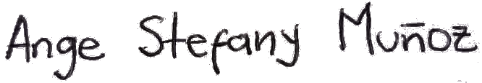 Ange Stefany Muñoz